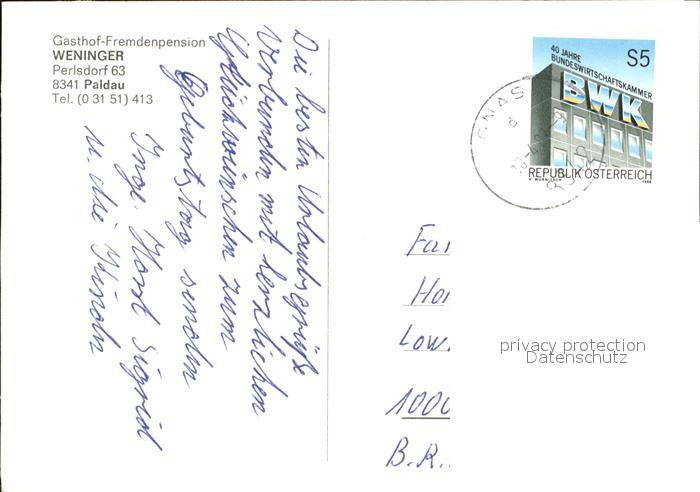 Gasthof-Fremdenpension
WENINGER
Perlsdorf 63
8341 Paldau
Tel. (0 31 51) 413
Die besten Urlaubsgrüße
verbunden mit herzlichen
Glückwünschen zum
Geburtstag senden
Inge, Horst Sigrid
u. die Kinder
40 JAHRE
BUNDESWIRTSCHAFTSKAMMER
S5
BWK
REPUBLIK ÖSTERREICH
1986
GNAS
Fa
Ho
Low.
1000
B.R.
privacy protection
Datenschutz